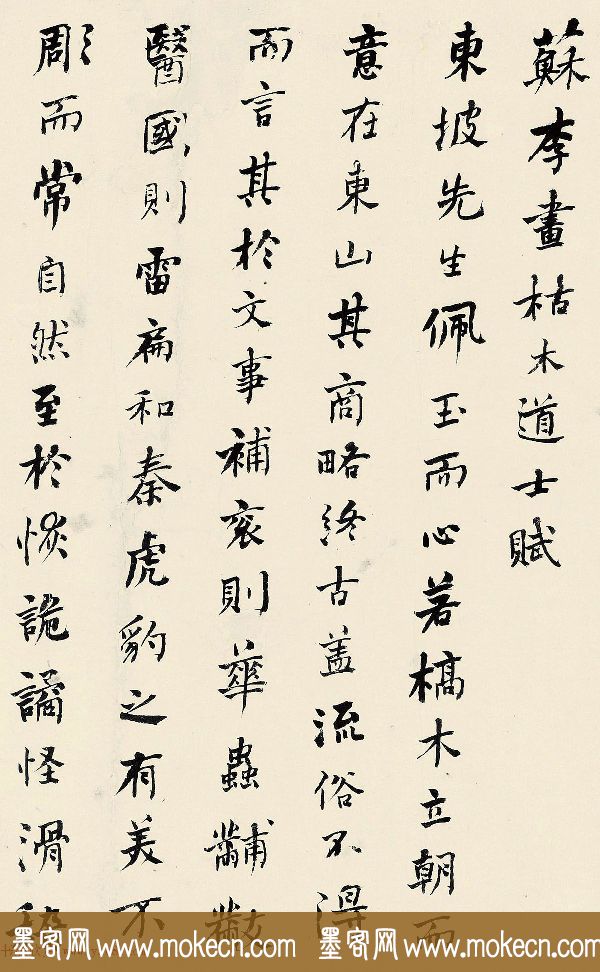 蘇李畫枯木道士賦
東坡先生佩玉而心若槁木立朝而
意在東山其商略終古盖流俗不得
而言其於文事補袞則華蟲黼黻
醫國則雷扁和秦虎豹之有美不
彫而常自然至於恢詭譎怪滑
墨客网_www.mokecn.com 墨客网_www.mokecn.com